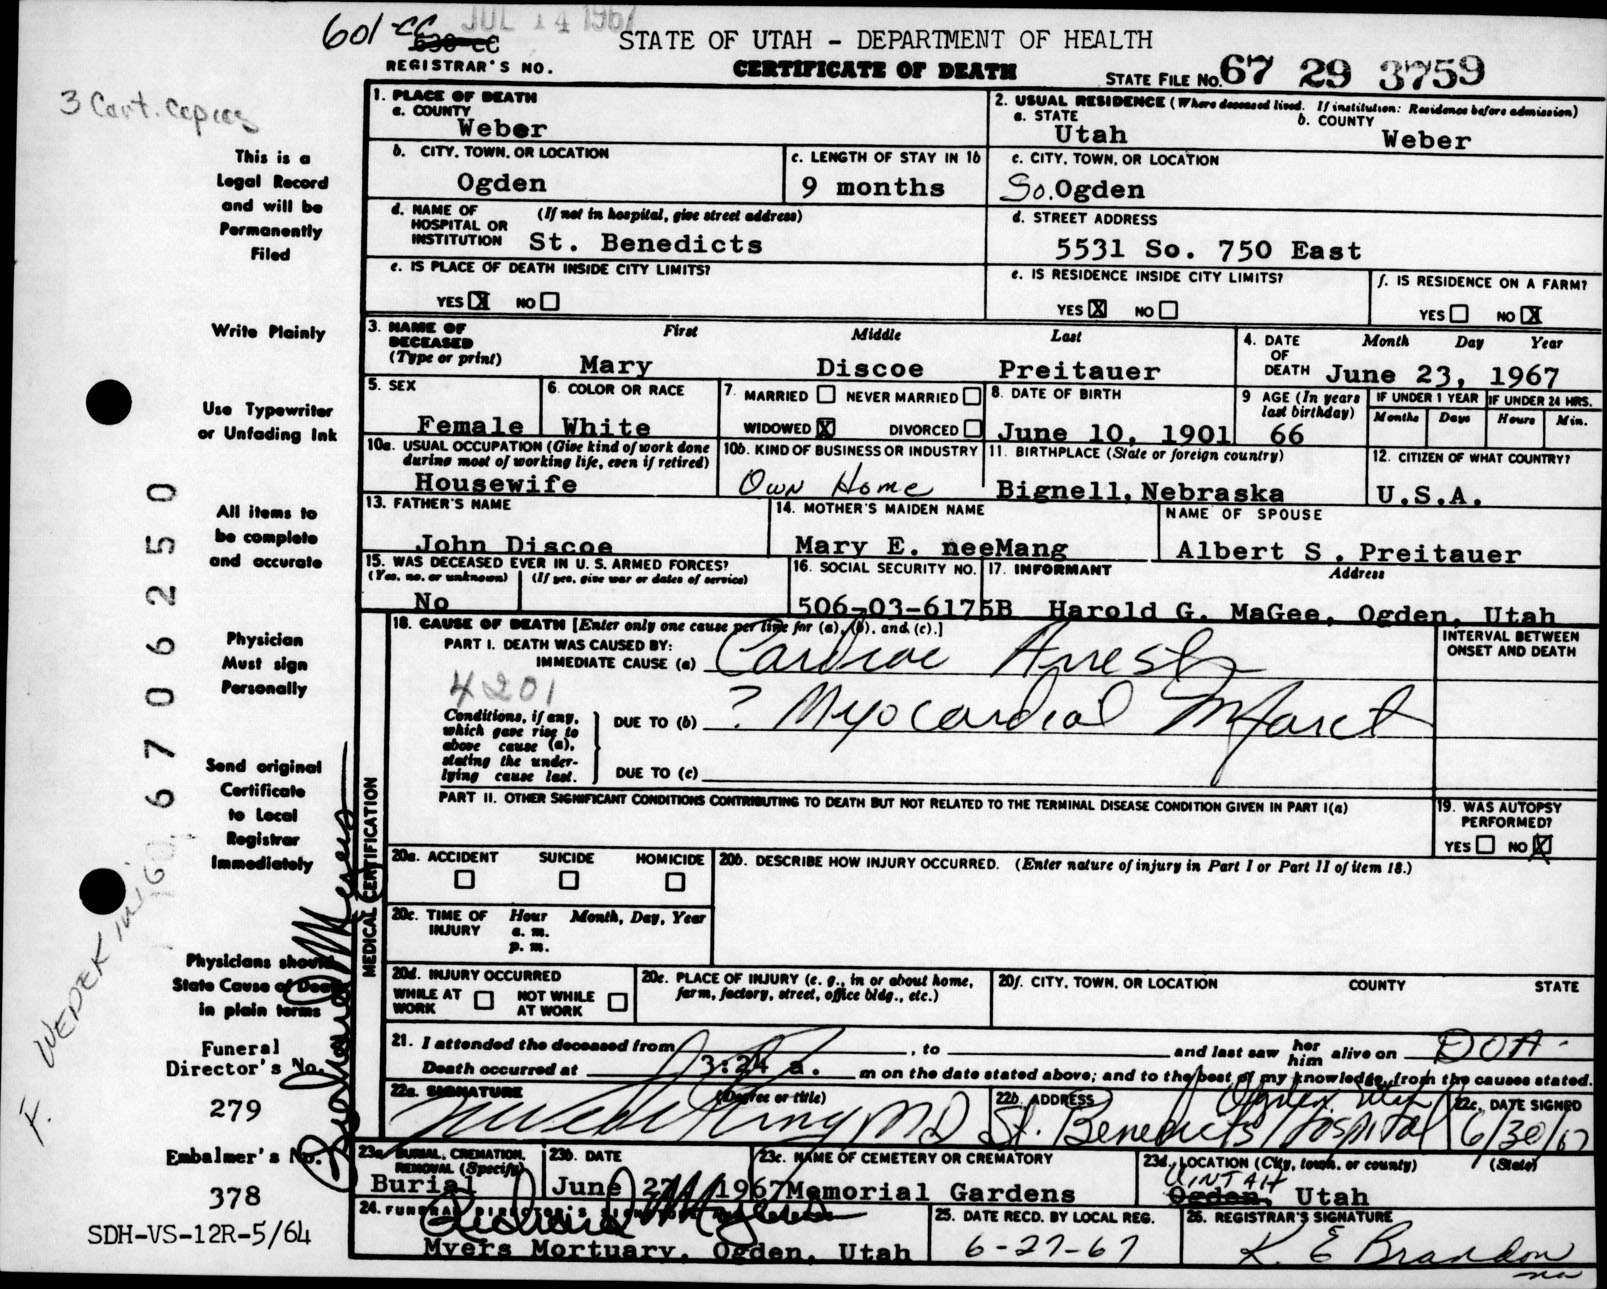 JUL 14 1967
601-CC
630-CC
REGISTRAR'S NO.
STATE OF UTAH - DEPARTMENT OF HEALTH
CERTIFICATE OF DEATH
STATE FILE NO. 67 29 3759
3 Cert. copies
This is a
Legal Record
and will be
Permanently
Filed
Write Plainly
Use Typewriter
or Unfading Ink
All items to
be complete
and accurate
Physician
Must sign
Personally
Send original
Certificate
to Local
Registrar
Immediately
Physicians should
State Cause of Death
in plain terms
Funeral
Director's No.
279
Embalmer's No.
378
SDH-VS-12R-5/64
6706250
1. PLACE OF DEATH
a. COUNTY
Weber
2. USUAL RESIDENCE (Where deceased lived. If institution: Residence before admission)
a. STATE
Utah
b. COUNTY
Weber
b. CITY, TOWN, OR LOCATION
Ogden
c. LENGTH OF STAY IN 1b
9 months
c. CITY, TOWN, OR LOCATION
So. Ogden
d. NAME OF HOSPITAL OR INSTITUTION (If not in hospital, give street address)
St. Benedicts
d. STREET ADDRESS
5531 So. 750 East
e. IS PLACE OF DEATH INSIDE CITY LIMITS?
YES X NO
e. IS RESIDENCE INSIDE CITY LIMITS?
YES X NO
f. IS RESIDENCE ON A FARM?
YES NO X
3. NAME OF DECEASED (Type or print)
First Middle Last
Mary Discoe Preitauer
4. DATE OF DEATH
Month Day Year
June 23, 1967
5. SEX
Female
6. COLOR OR RACE
White
7. MARRIED NEVER MARRIED
WIDOWED X DIVORCED
8. DATE OF BIRTH
June 10, 1901
9 AGE (In years last birthday)
66
IF UNDER 1 YEAR
Months Days
IF UNDER 24 HRS.
Hours Min.
10a. USUAL OCCUPATION (Give kind of work done during most of working life, even if retired)
Housewife
10b. KIND OF BUSINESS OR INDUSTRY
Own Home
11. BIRTHPLACE (State or foreign country)
Bignell, Nebraska
12. CITIZEN OF WHAT COUNTRY?
U.S.A.
13. FATHER'S NAME
John Discoe
14. MOTHER'S MAIDEN NAME
Mary E. neeMang
NAME OF SPOUSE
Albert S. Preitauer
15. WAS DECEASED EVER IN U. S. ARMED FORCES?
(Yes, no, or unknown) (If yes, give war or dates of service)
No
16. SOCIAL SECURITY NO.
506-03-6175B
17. INFORMANT Address
Harold G. MaGee, Ogden, Utah
18. CAUSE OF DEATH [Enter only one cause per line for (a), (b), and (c).]
PART I. DEATH WAS CAUSED BY:
IMMEDIATE CAUSE (a) Cardiac Arrest
4201
INTERVAL BETWEEN ONSET AND DEATH
Conditions, if any, which gave rise to above cause (a), stating the underlying cause last.
DUE TO (b) ? Myocardial Infarct
DUE TO (c)
PART II. OTHER SIGNIFICANT CONDITIONS CONTRIBUTING TO DEATH BUT NOT RELATED TO THE TERMINAL DISEASE CONDITION GIVEN IN PART I(a)
19. WAS AUTOPSY PERFORMED?
YES NO X
MEDICAL CERTIFICATION
20a. ACCIDENT SUICIDE HOMICIDE
20b. DESCRIBE HOW INJURY OCCURRED. (Enter nature of injury in Part I or Part II of item 18.)
20c. TIME OF INJURY
Hour Month, Day, Year
a. m.
p. m.
20d. INJURY OCCURRED
WHILE AT WORK NOT WHILE AT WORK
20e. PLACE OF INJURY (e. g., in or about home, farm, factory, street, office bldg., etc.)
20f. CITY, TOWN, OR LOCATION COUNTY STATE
21. I attended the deceased from , to and last saw her him alive on DOA
Death occurred at 3:24 a. m on the date stated above; and to the best of my knowledge, from the causes stated.
22a. SIGNATURE (Degree or title)
MD
22b. ADDRESS
Ogden Utah
St. Benedicts Hospital
22c. DATE SIGNED
6/30/67
23a. BURIAL, CREMATION, REMOVAL (Specify)
Burial
23b. DATE
June 27, 1967
23c. NAME OF CEMETERY OR CREMATORY
Memorial Gardens
23d. LOCATION (City, town, or county) (State)
UINTAH
Ogden, Utah
24. FUNERAL DIRECTOR'S SIGNATURE
Richard Myers
Myers Mortuary, Ogden, Utah
25. DATE RECD. BY LOCAL REG.
6-27-67
26. REGISTRAR'S SIGNATURE
K. E Brandon